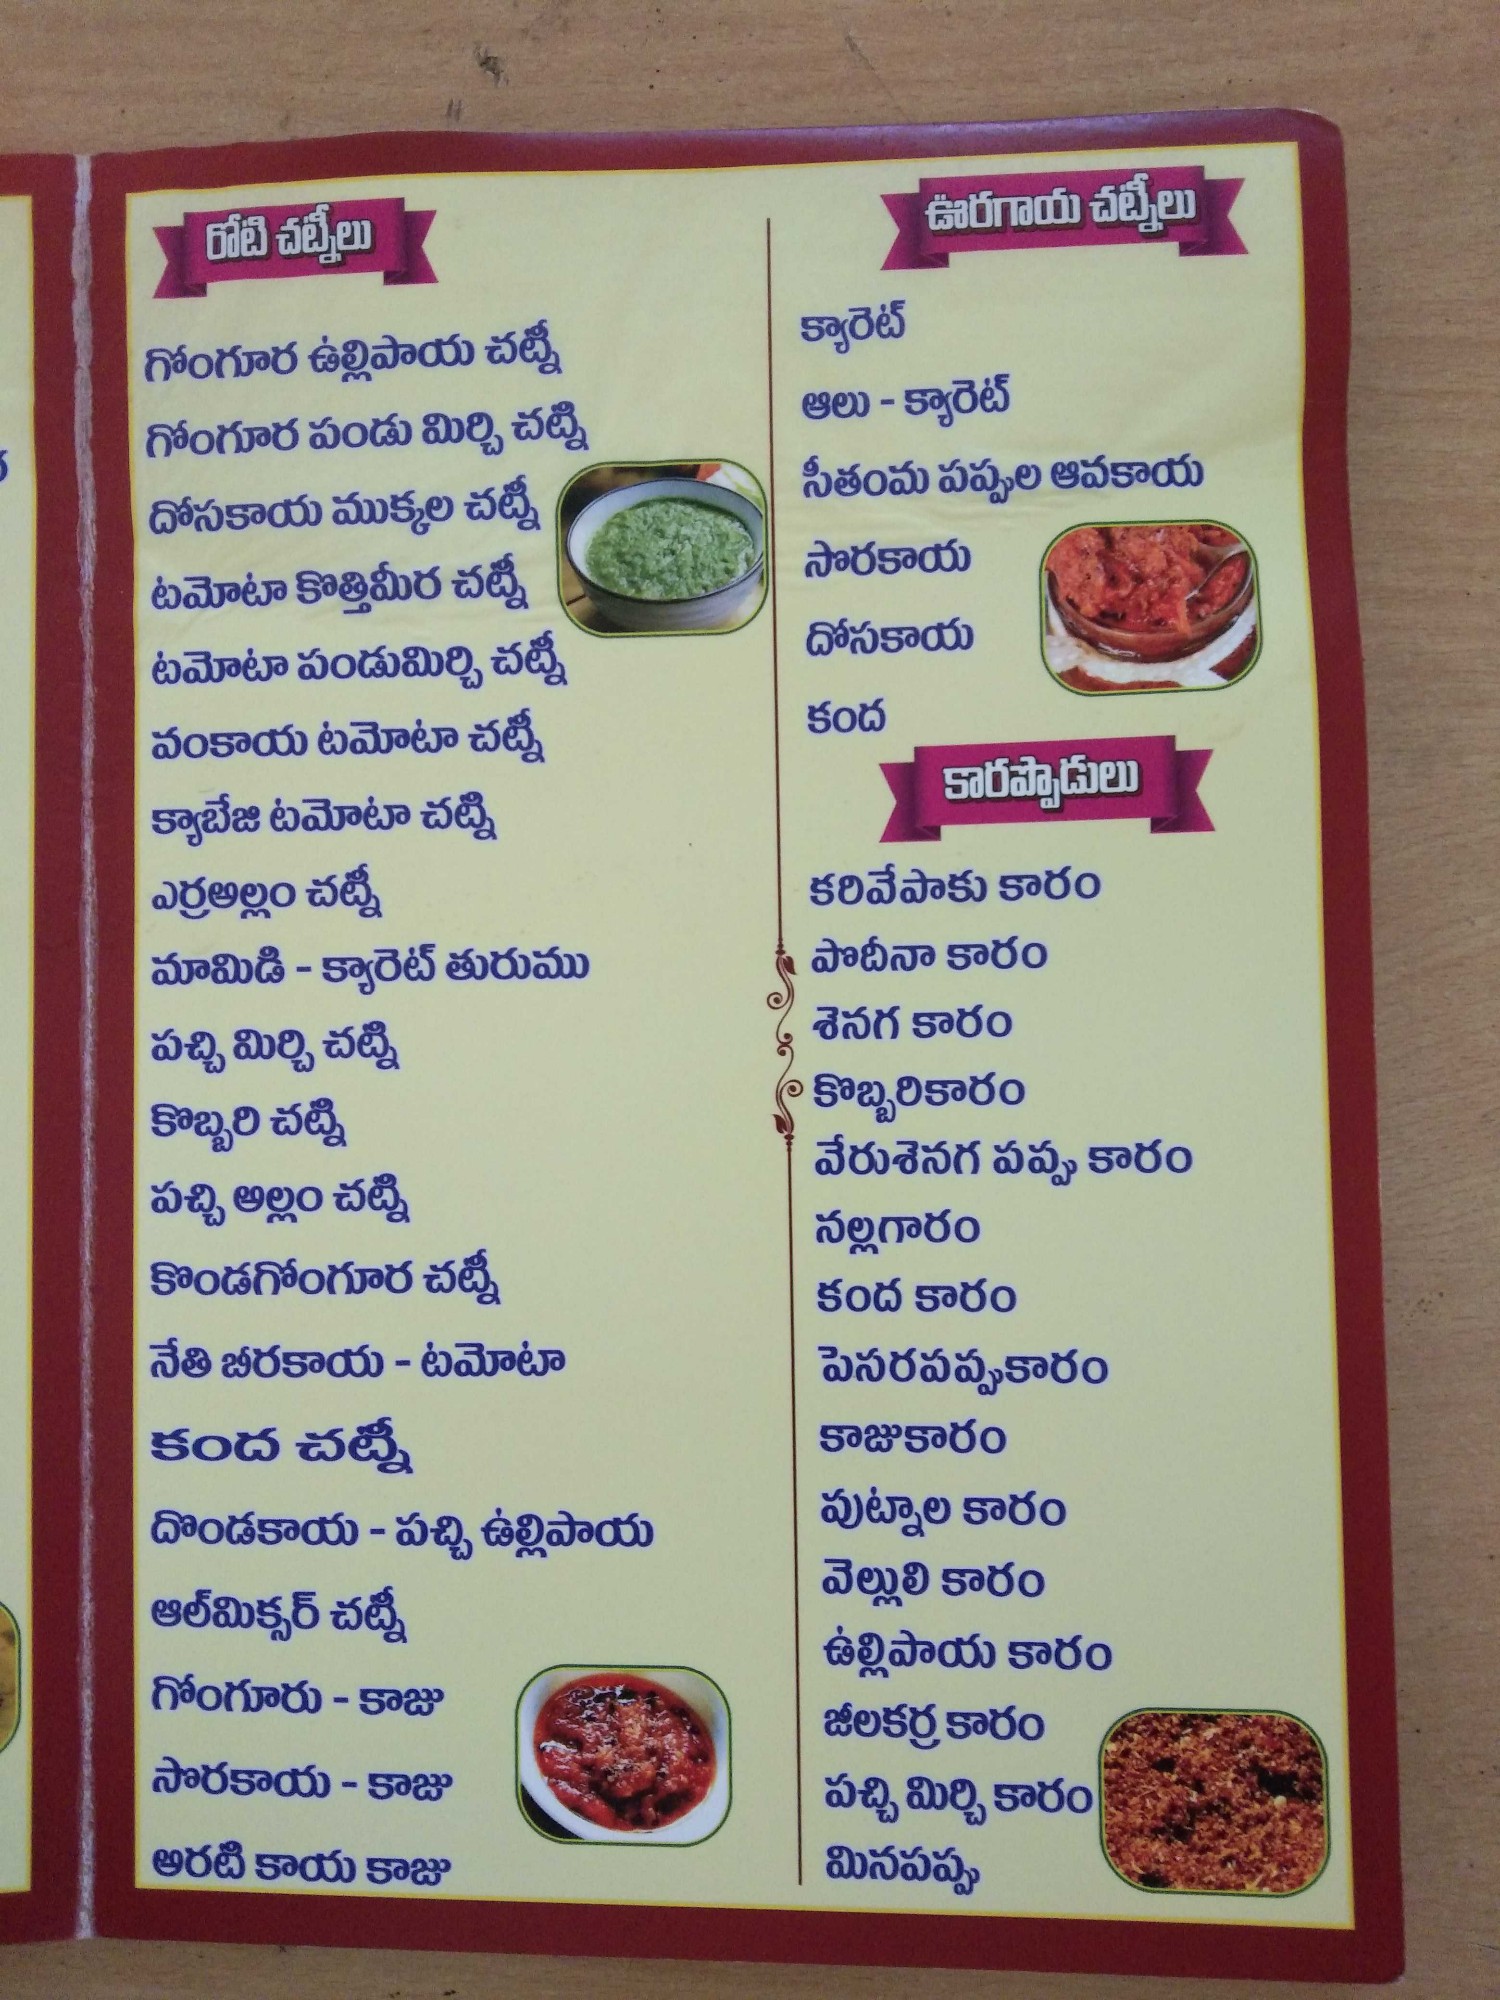 రోటి చట్నీలు
గోంగూర ఉల్లిపాయ చట్నీ
గోంగూర పండు మిర్చి చట్ని
దోసకాయ ముక్కల చట్నీ
టమోటా కొత్తిమీర చట్నీ
టమోటా పండుమిర్చి చట్నీ
వంకాయ టమోటా చట్నీ
క్యాబేజి టమోటా చట్ని
ఎర్రఅల్లం చట్నీ
మామిడి - క్యారెట్ తురుము
పచ్చి మిర్చి చట్ని
కొబ్బరి చట్ని
పచ్చి అల్లం చట్ని
కొండగోంగూర చట్నీ
నేతి బీరకాయ - టమోటా
కంద చట్నీ
దొండకాయ - పచ్చి ఉల్లిపాయ
ఆల్‌మిక్సర్ చట్నీ
గోంగూరు - కాజు
సొరకాయ - కాజు
అరటి కాయ కాజు
ఊరగాయ చట్నీలు
క్యారెట్
ఆలు - క్యారెట్
సీతంమ పప్పుల ఆవకాయ
సొరకాయ
దోసకాయ
కంద
కారప్పొడులు
కరివేపాకు కారం
పొదీనా కారం
శెనగ కారం
కొబ్బరికారం
వేరుశెనగ పప్పు కారం
నల్లగారం
కంద కారం
పెసరపప్పుకారం
కాజుకారం
పుట్నాల కారం
వెల్లులి కారం
ఉల్లిపాయ కారం
జీలకర్ర కారం
పచ్చి మిర్చి కారం
మినపప్పు